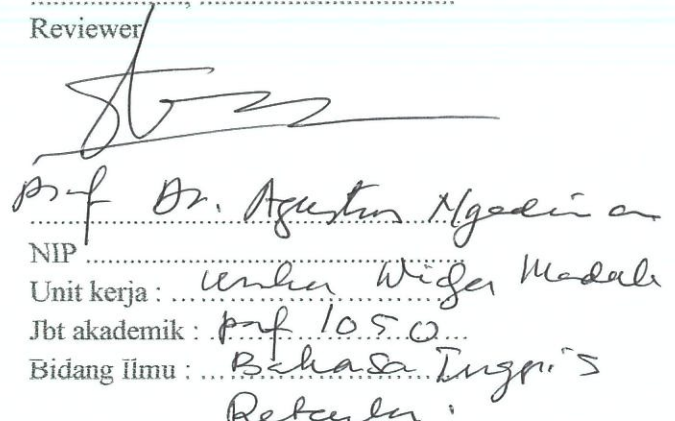 Reviewer
Prof Dr. Agustinus Ngadiman
NIP
Unit kerja : Unika Widya Mandala
Jbt akademik : Prof 1050
Bidang Ilmu : Bahasa Inggris